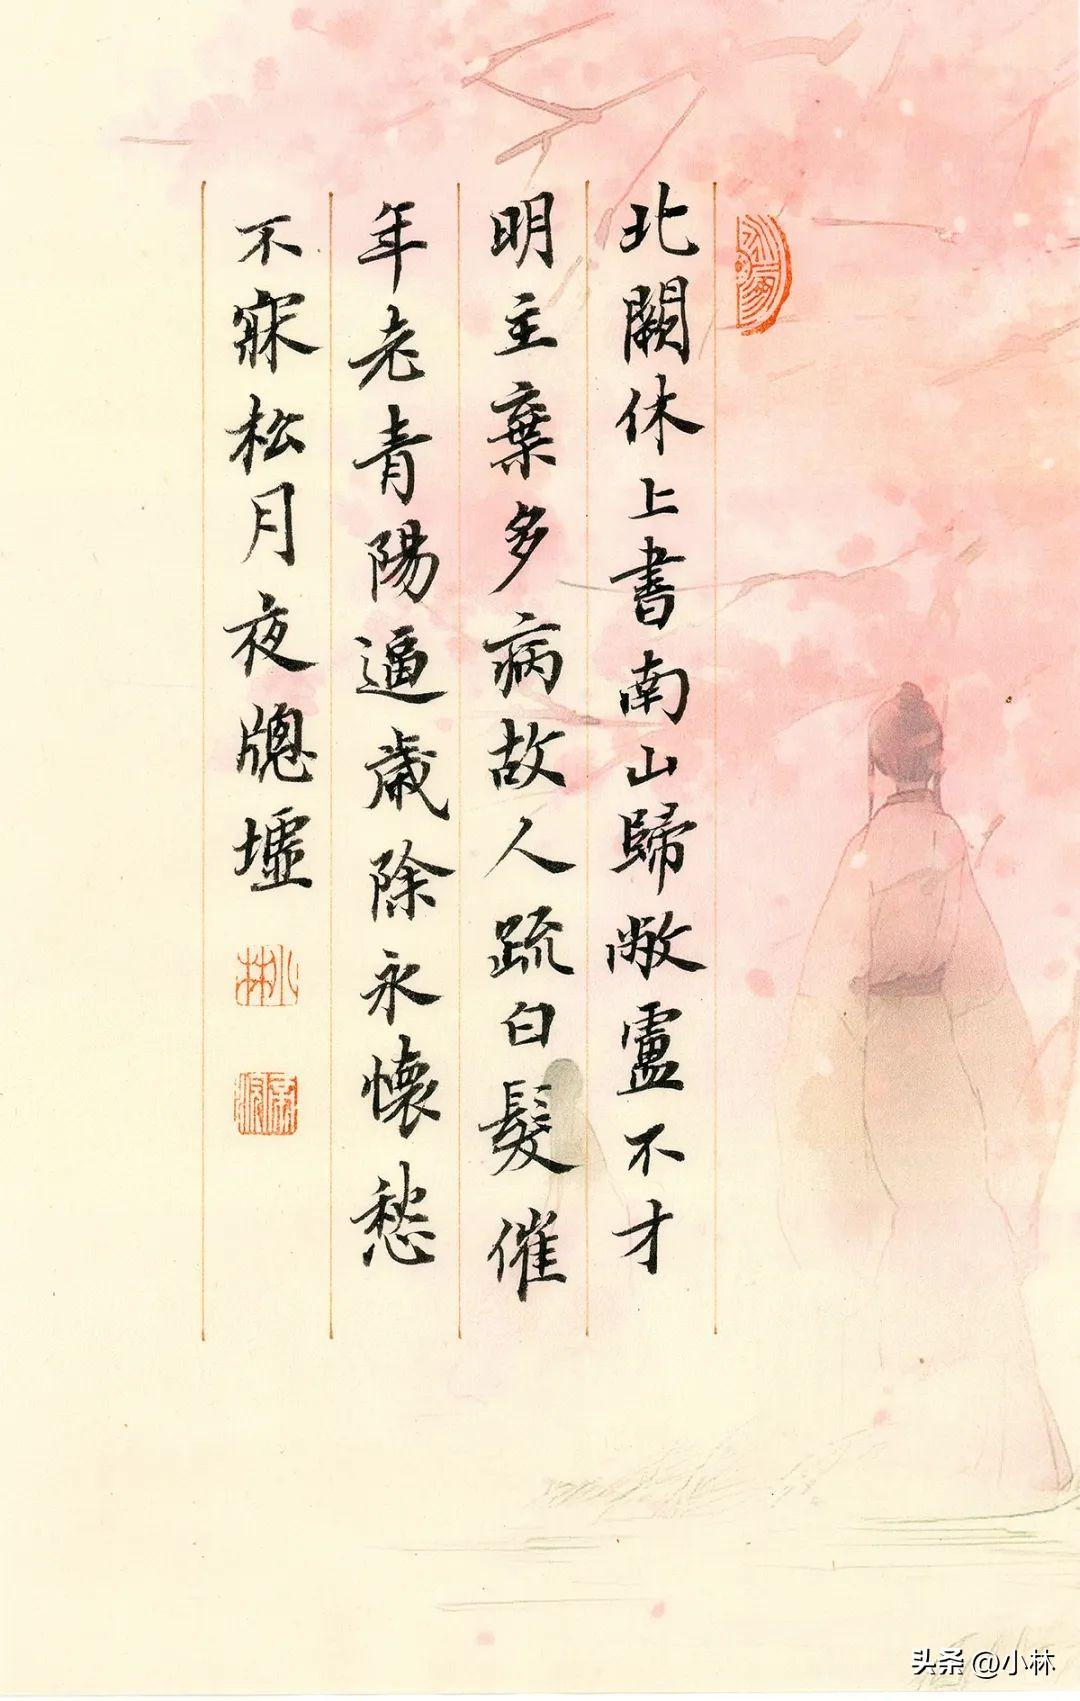 北闕休上書南山歸敝盧不才
明主棄多病故人疏白髮催
年老青陽逼歲除永懷愁
不寐松月夜牕墟
小林
头条 @小林